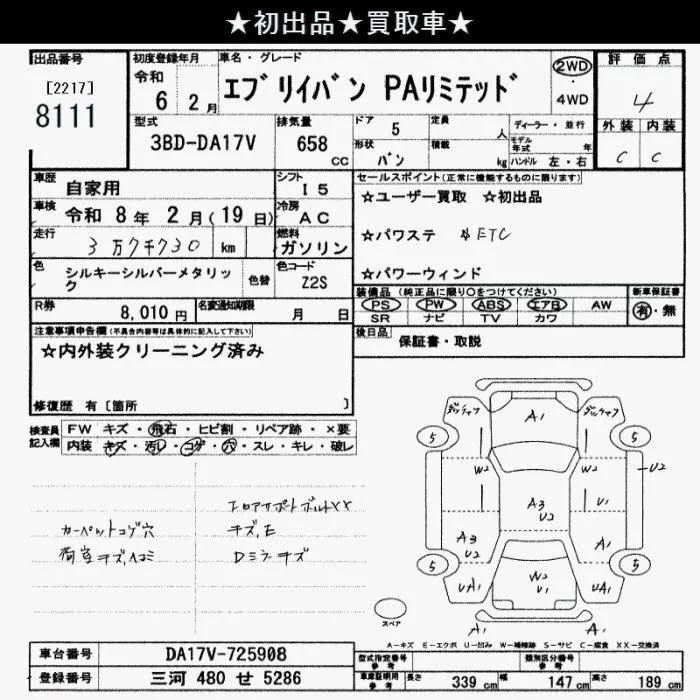 ★初出品★買取車★
出品番号
[2217]
8111
初度登録年月
令和
6 2月
車名・グレード
エブリイバン PAリミテッド
2WD
・
4WD
評価点
4
外装 内装
C C
型式
3BD-DA17V
排気量
658 cc
ドア 5
定員 人
形状 バン
積載 kg
ディーラー・並行
モデル年式 年
ハンドル 左・右
車歴 自家用
シフト I5
車検 令和 8年 2月(19日)
冷房 AC
走行 3万9千730 km
燃料 ガソリン
色 シルキーシルバーメタリック
色替
色コード Z2S
R券 8,010円
名変通知期限 月 日
セールスポイント(正常に機能するものに限ります)
☆ユーザー買取 ☆初出品
☆パワステ ☆ETC
☆パワーウィンド
装備品(純正品に限り○をつけてください)
PS PW ABS エアB AW
SR ナビ TV カワ
新車保証書
有・無
後日品 保証書・取説
注意事項申告欄(不具合内容等は具体的に記入して下さい)
☆内外装クリーニング済み
修復歴 有[箇所 ]
検査員記入欄
FW キズ・飛石・ヒビ割・リペア跡・×要
内装 キズ・汚レ・コゲ・穴・スレ・キレ・破レ
カーペットコゲ穴
荷室キズ、ヘコミ
エロアサポートボルトXX
キズ、E
Dミラーキズ
ダックテープ A1 ダックテープ
5 5
W2 W2 U2
A3 U2 U1
A3 U2 A1
5 5
UA1 W2 U1 UA1
スペア
A1 A1
A-キズ E-エクボ U-凹み W-補修跡 S-サビ C-腐食 XX-交換済
車台番号 DA17V-725908
登録番号 三河 480 せ 5286
型式指定番号 参考
類別区分番号 参考
車庫証明用 参考 長さ 339cm 幅 147cm 高さ 189cm